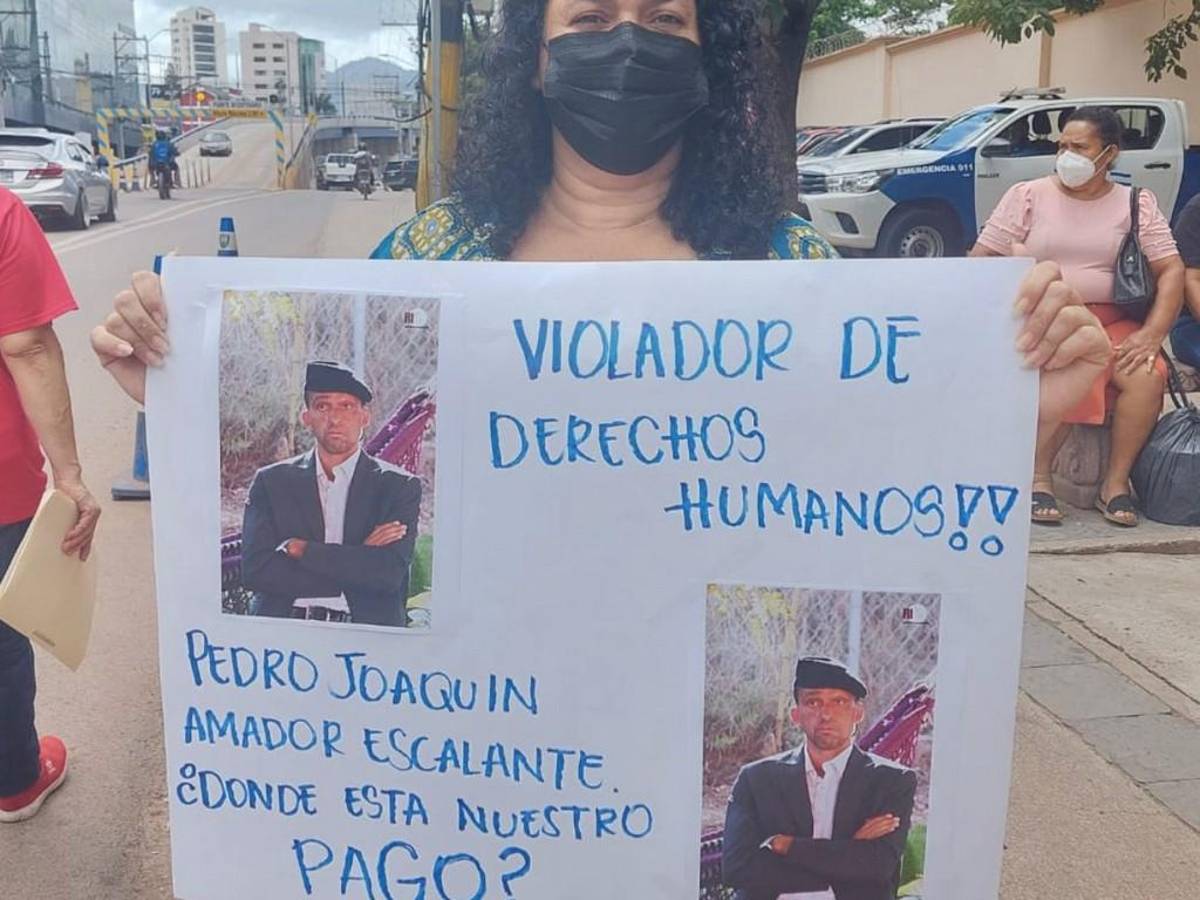 EMERGENCIA 911
VIOLADOR DE
DERECHOS
HUMANOS!!
PEDRO JOAQUIN
AMADOR ESCALANTE.
¿DONDE ESTA NUESTRO
PAGO?